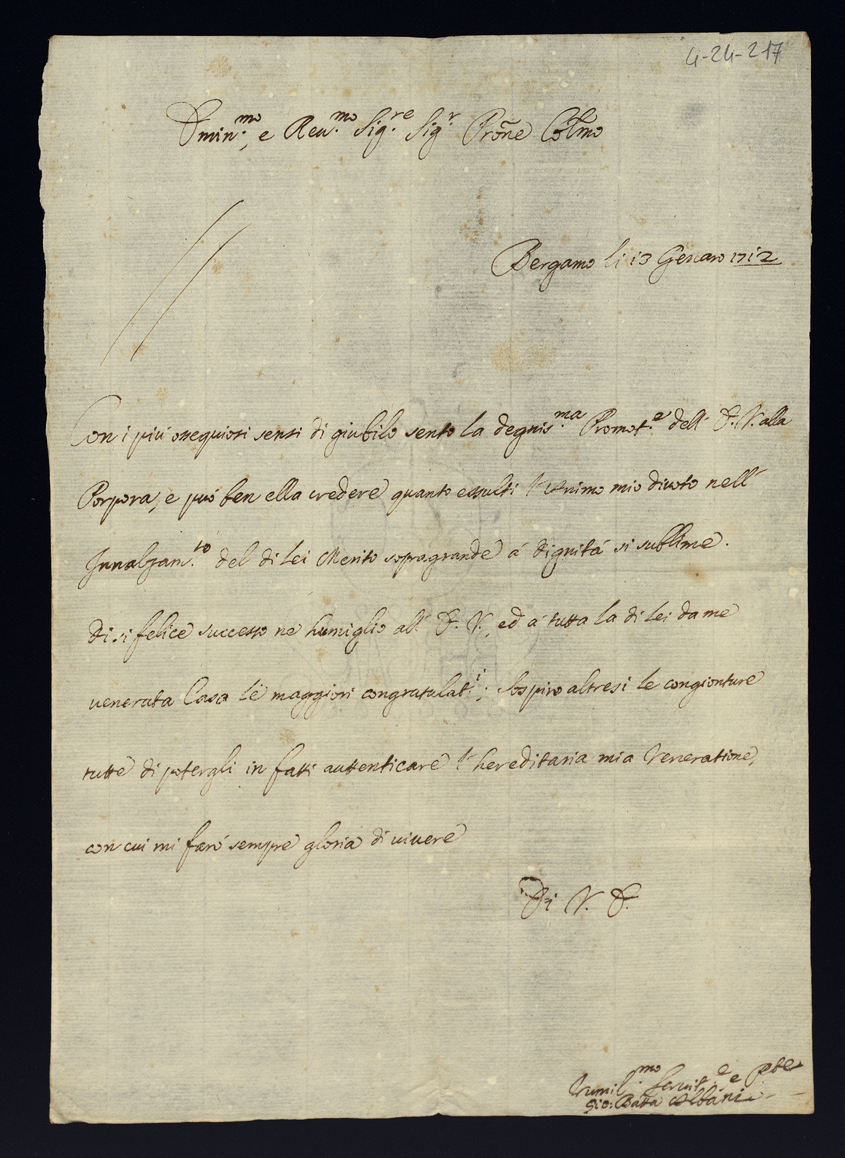 4-24-217
Emin.mo, e Reu.mo Sig.re Sig.r Prone Colmo
Bergamo li 13 Genaro 1712
Con i più ossequiosi sensi di giubilo sento la degnis.ma Promot.e dell' E. V. alla
Porpora, e può ben ella credere quanto essulti l'animo mio diuoto nell'
Innalzam.to del di Lei Merito sopragrande à dignità si sublime.
di si felice successo ne humiglio all' E. V., ed à tutta la di Lei da me
venerata Casa le maggiori congratulat.i; Sospiro altresi le congionture
tutte di potergli in fatti auttenticare l'hereditaria mia Veneratione,
con cui mi farò sempre gloria di uiuere
Di V. E.
Humil.mo Seruit.e e
Gio: Batta Albani